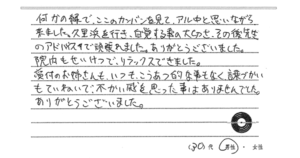 何かの縁で、ここのカンバンを見て、アル中と思いながら
来ました。久里浜を行き、自覚する事の大切さ、その後先生
のアドバイスで頑張れました。ありがとうございました。
院内もせいけつで、リラックスできました。
受付のお姉さんも、いつも、こうあつ的な事もなく、話すかい
もていねいで、不かい感を思った事はありませんでした。
ありがとうございました。
(30代 男性・女性